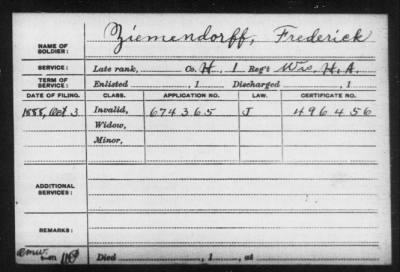 NAME OF SOLDIER: Ziemendorff, Frederick
SERVICE: Late rank, Co. H, 1 Reg't Wis. H. A.
TERM OF SERVICE: Enlisted , 1 Discharged , 1
DATE OF FILING. CLASS. APPLICATION NO. LAW. CERTIFICATE NO.
1888, Oct 3 Invalid, 674365 J 496456
Widow,
Minor,
ADDITIONAL SERVICES:
REMARKS:
Died , 1 , at